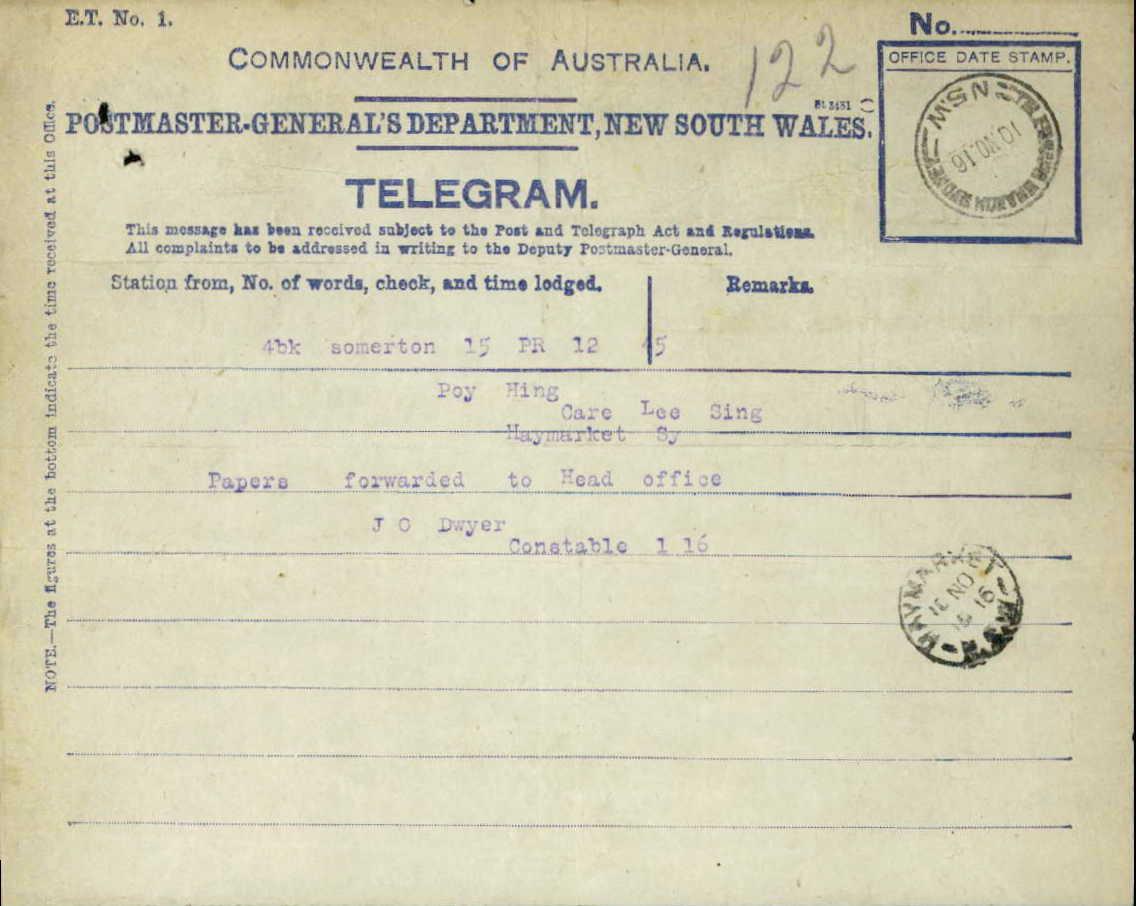 E.T. No. 1.
No.
COMMONWEALTH OF AUSTRALIA.
122
OFFICE DATE STAMP.
POSTMASTER-GENERAL'S DEPARTMENT, NEW SOUTH WALES.
N.S.W
10 NO 16
TELEGRAM.
This message has been received subject to the Post and Telegraph Act and Regulations.
All complaints to be addressed in writing to the Deputy Postmaster-General.
Station from, No. of words, check, and time lodged.
Remarks.
4bk somerton 15 PR 12 45
Poy Hing
Care Lee Sing
Haymarket Sy
Papers forwarded to Head office
J C Dwyer
Constable 1 16
HAYMARKET
NO
16
N.S.W
NOTE.—The figures at the bottom indicate the time received at this Office.